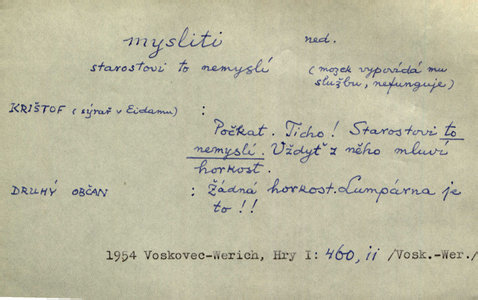 mysliti ned.
starostovi to nemyslí (mozek vypovídá mu
službu, nefunguje)
KRIŠTOF (sýrař v Eidamu) :
Počkat. Ticho! Starostovi to
nemyslí. Vždyť z něho mluví
horkost.
DRUHÝ OBČAN : Žádná horkost. Lumpárna je
to!!
1954 Voskovec-Werich, Hry I: 460, ii /Vosk.-Wer./